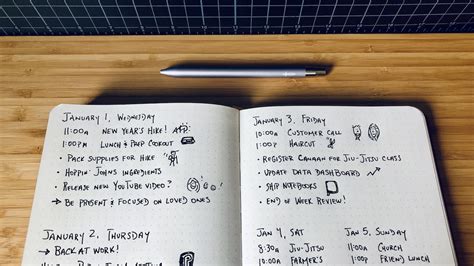 JANUARY 1, WEDNESDAY
11:00A NEW YEAR'S HIKE!
1:00PM LUNCH & PREP COOKOUT
• PACK SUPPLIES FOR HIKE
• HOPPIN' JOHN'S INGREDIENTS
• RELEASE NEW YOUTUBE VIDEO?
→ BE PRESENT & FOCUSED ON LOVED ONES
JANUARY 2, THURSDAY
→ BACK AT WORK!
JANUARY 3, FRIDAY
10:00A CUSTOMER CALL
1:00PM HAIRCUT
• REGISTER CANAAN FOR JIU-JITSU CLASS
• UPDATE DATA DASHBOARD
• SHIP NOTEBOOKS
• END OF WEEK REVIEW!
JAN 4, SAT
8:30A JIU-JITSU
10:00A FARMER'S
JAN 5, SUNDAY
11:00A CHURCH
1:00P FRIEND LUNCH